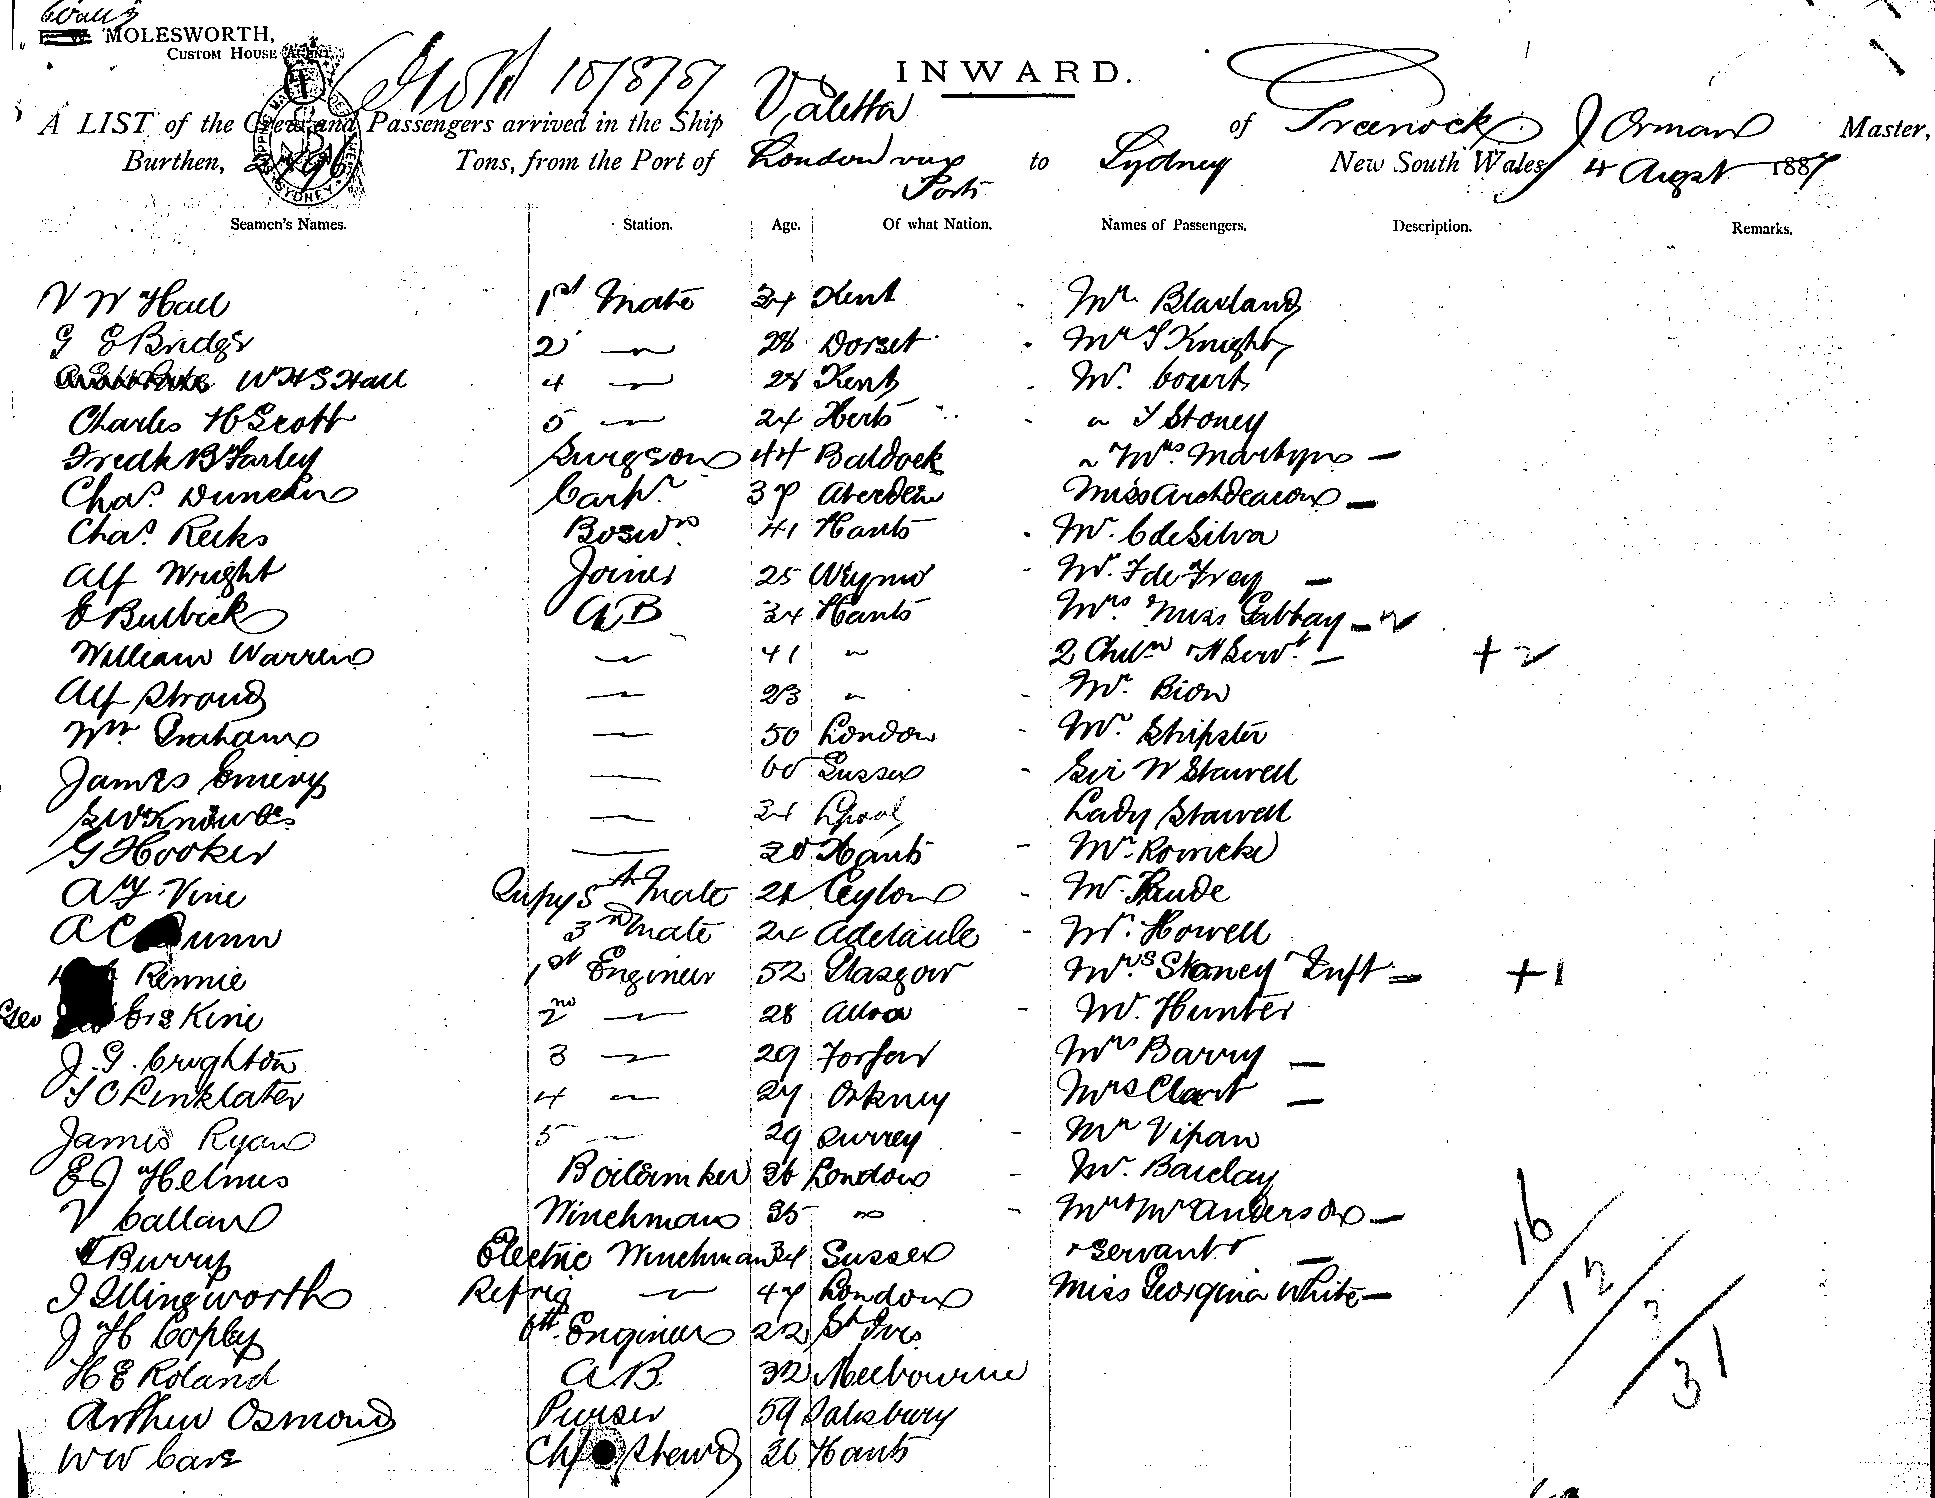 MOLESWORTH,
CUSTOM HOUSE AGENT
INWARD.
A LIST of the Crew and Passengers arrived in the Ship Valetta of Greenock J Orman Master,
Burthen, Tons, from the Port of London via Ports to Sydney New South Wales 4 Augst 1887
Seamen's Names. Station. Age. Of what Nation. Names of Passengers. Description. Remarks.
V W Hall 1st Mate 34 Kent Mr Blaxland
G E Bridges 2 〃 28 Dorset Mr S Knight
W H S Hall 4 〃 28 Kent Mr. Court
Charles H Scott 5 〃 24 Herts 〃 Stoney
Fredk B Farley Surgeon 44 Baldock 〃 Mrs. Martyn —
Chas. Duncan Carpr. 37 Aberdeen Miss Archdeacon —
Chas. Reeks Boswn. 41 Hants Mr. C de Silva
Alf Wright Joiner 25 Weymo Mr. F de Frey —
E Bulbick AB 34 Hants Mrs Miss Gabbay —
William Warren 〃 41 〃 2 Chiln Servt. — + 2
Alf Stroud 〃 23 〃 Mr. Bion
Wm Graham 〃 50 London Mr. Shipster
James Emery 〃 60 Sussex Sir W Stawell
Knowles 〃 Lpool Lady Stawell
G Hooker 〃 20 Hants Mr.
A Vine Supy 5th Mate Ceylon Mr.
A C Dunn 3rd Mate 24 Adelaide Mr. Howell
Rennie 1st Engineer 52 Glasgow Mrs. Stoney Inft — + 1
Geo Kirie 2nd 〃 28 Alloa Mr. Hunter
J. G. Crighton 3 〃 29 Forfar Mrs Barry —
Linklater 4 〃 27 Orkney Mrs Clark —
James Ryan 5 〃 29 Surrey Mr Vipan
E J Helmes Boilermker 36 London Mr. Barclay
V Callan Winchman 35 〃 Mr & Mrs Anderson —
Burry Electric Winchman 34 Sussex & Servant —
J Illingworth Refrig 〃 47 London Miss Georgina White —
J H Copley 6th. Engineer 22 St Ives
H E Roland A.B. 32 Melbourne
Arthur Osmond Purser 59 Salisbury
W W Carr Chf Stewd 36 Hants
16/12/3/31